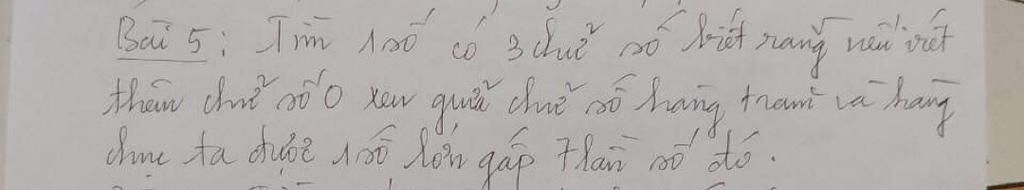 Bài 5: Tìm 1 số có 3 chữ số biết rằng nếu viết
thêm chữ số 0 xen giữa chữ số hàng trăm và hàng
chục ta được 1 số lớn gấp 7 lần số đó.